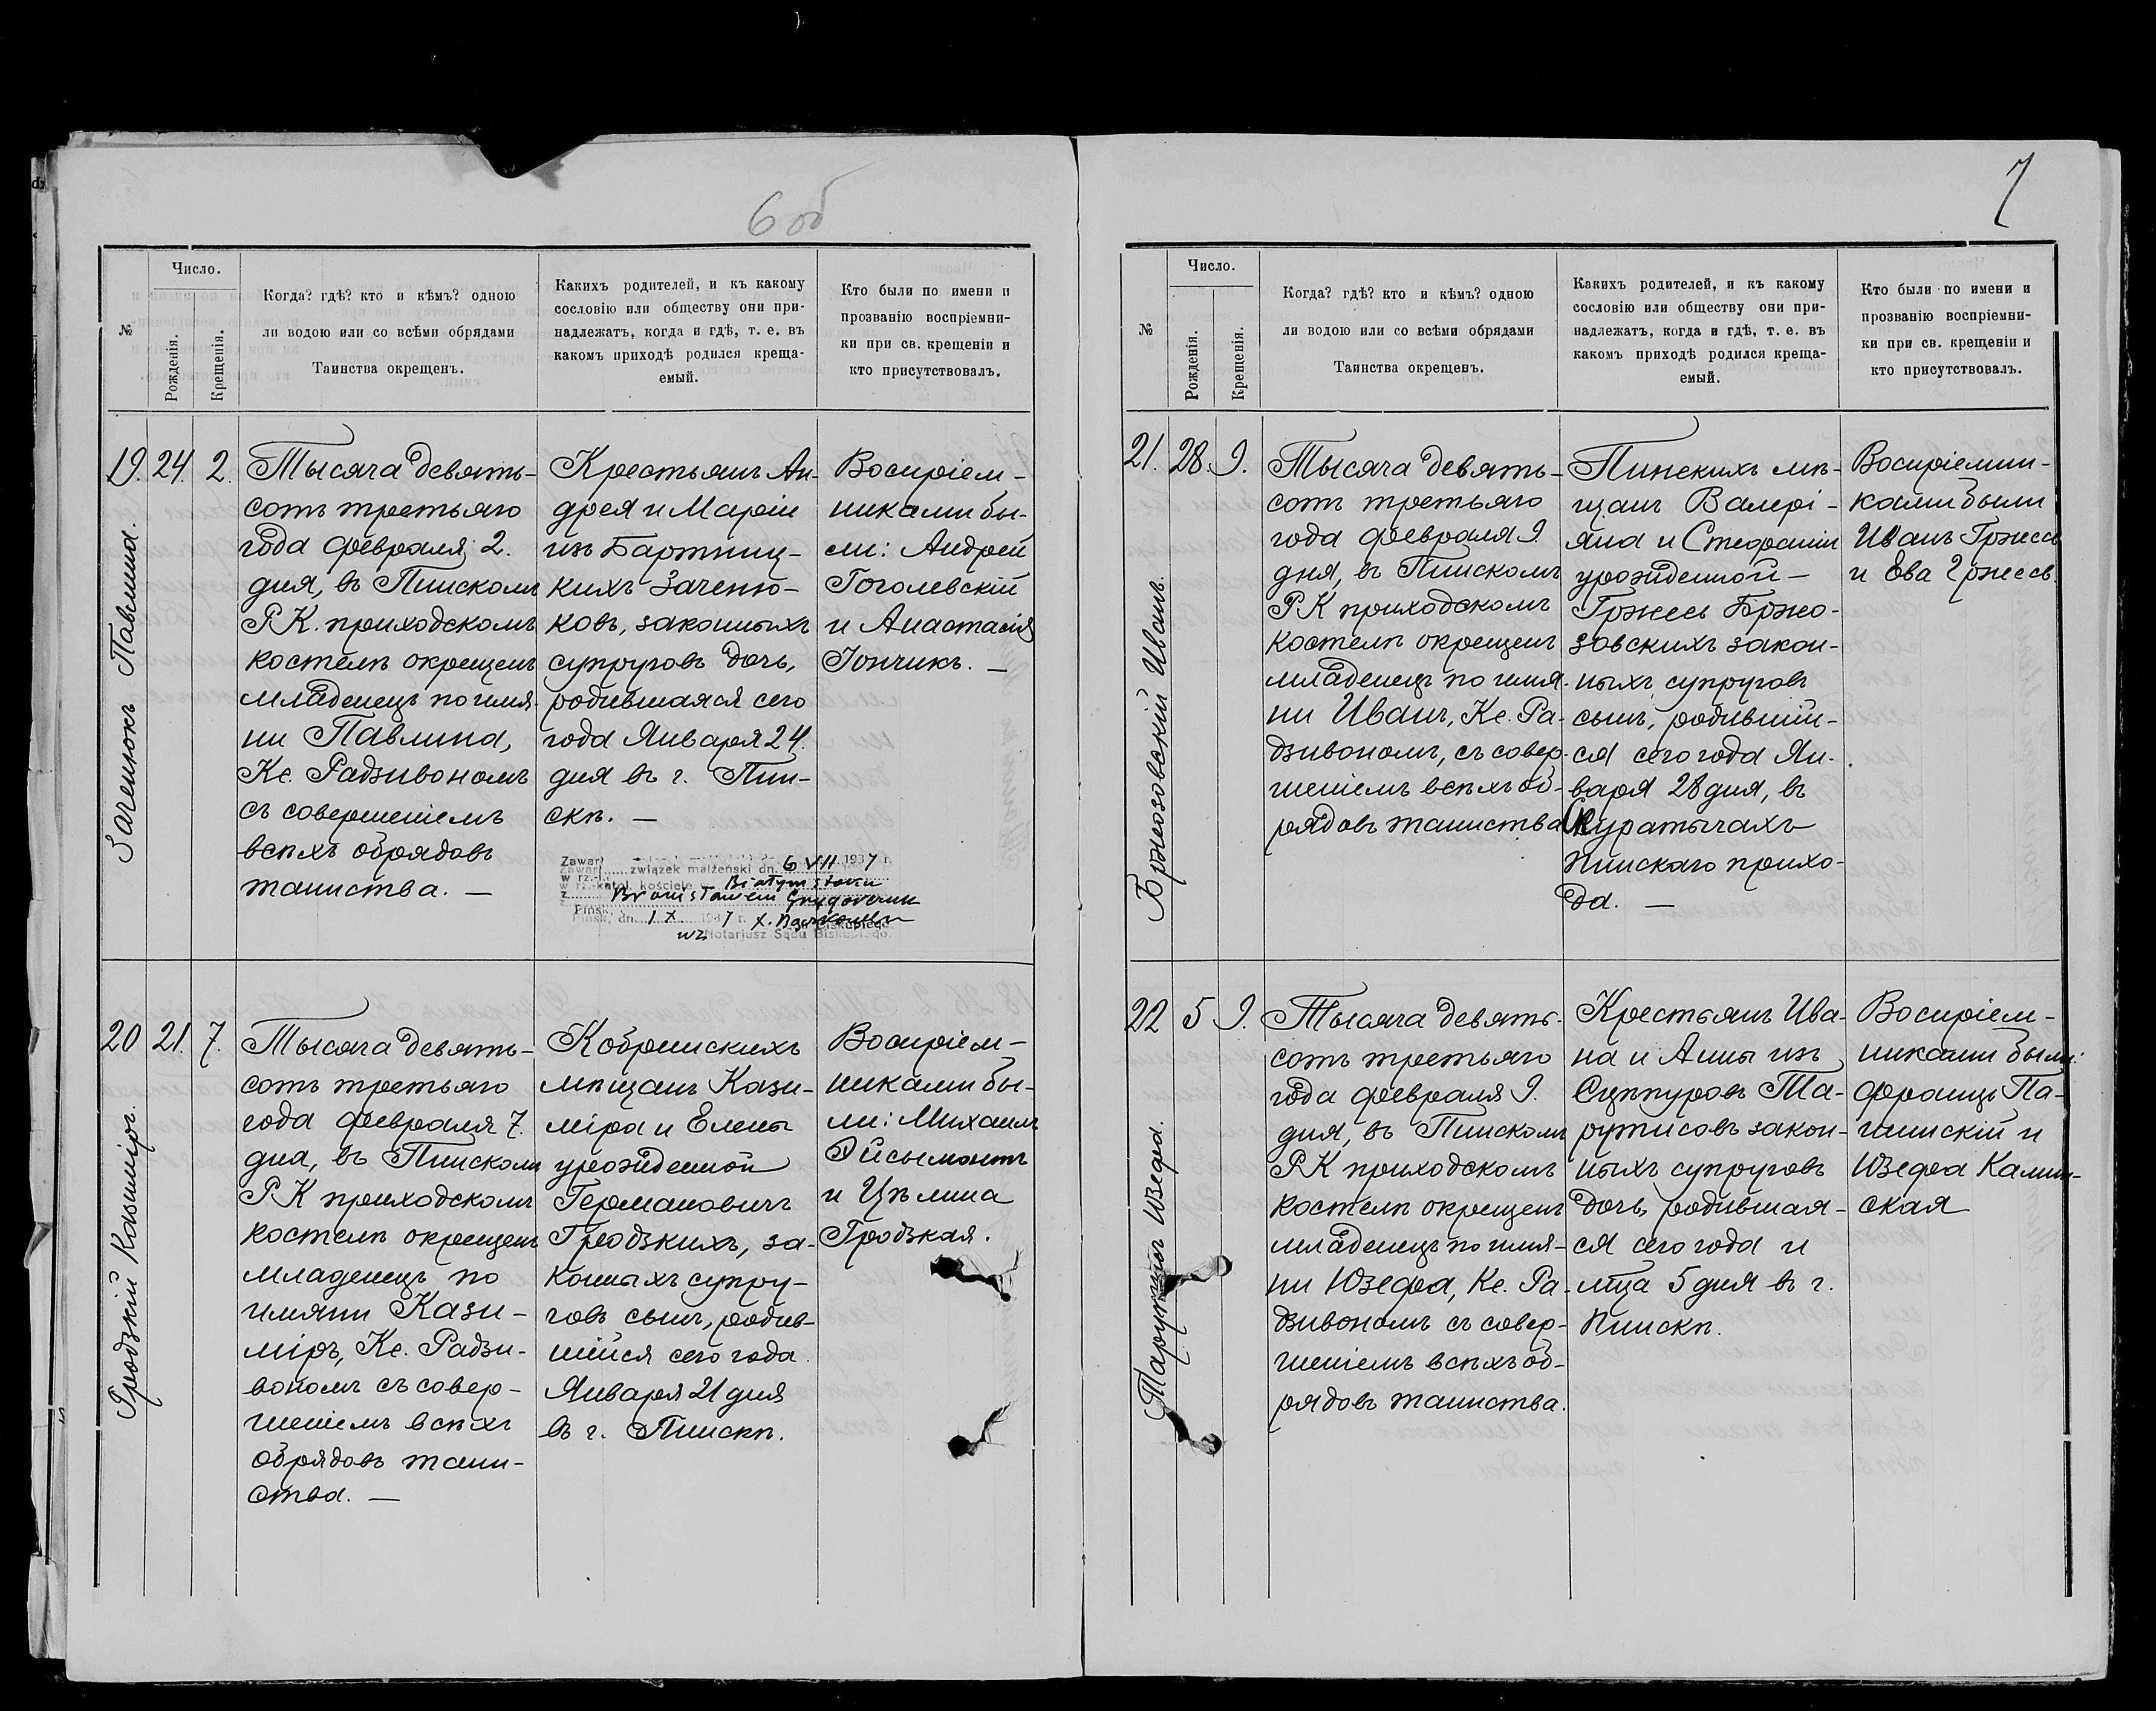 6 об
№
Число.
Рожденія.
Крещенія.
Когда? гдѣ? кто и кѣмъ? одною
ли водою или со всѣми обрядами
Таинства окрещенъ.
Какихъ родителей, и къ какому
сословію или обществу они при-
надлежатъ, когда и гдѣ, т. е. въ
какомъ приходѣ родился креща-
емый.
Кто были по имени и
прозванію воспріемни-
ки при св. крещеніи и
кто присутствовалъ.
Заченюкъ Павлина.
19. 24. 2.
Тысяча девять-
сотъ третьяго
года февраля 2.
дня, въ Пинскомъ
Р.К. приходскомъ
костелѣ окрещенъ
младенецъ по имя-
ни Павлина,
Кс. Радзивономъ
съ совершеніемъ
всѣхъ обрядовъ
таинства. —
Крестьянъ Ан-
дрея и Маріи
изъ Бартниц-
кихъ Заченю-
ковъ, законныхъ
супруговъ дочь,
родившаяся сего
года Января 24.
дня въ г. Пин-
скѣ. —
Zawarł związek małżeński dn. 6 VII 1937 r.
w rz.-katol. kościele Białymstoku
z Bronisławem
Pińsk, dn. 1 X 1937 r. X.
wz. Notarjusz Sądu Biskupiego.
Воспріем-
никами бы-
ли: Андрей
Гоголевскій
и Анастасія
Гончикъ. —
Гродзкій Казиміръ.
20 21. 7.
Тысяча девять-
сотъ третьяго
года февраля 7.
дня, въ Пинскомъ
Р К приходскомъ
костелѣ окрещенъ
младенецъ по
имяни Кази-
міръ, Кс. Радзи-
вономъ съ совер-
шеніемъ всѣхъ
обрядовъ таин-
ства. —
Кобринскихъ
мѣщанъ Кази-
міра и Елены
урожденной
Германовичъ
Гродзкихъ, за-
конныхъ супру-
говъ сынъ, родив-
шийся сего года
Января 21 дня
въ г. Пинскѣ.
Воспріем-
никами бы-
ли: Михаилъ
Эйсымонтъ
и Цѣлина
Гродзкая.
7
№
Число.
Рожденія.
Крещенія.
Когда? гдѣ? кто и кѣмъ? одною
ли водою или со всѣми обрядами
Таинства окрещенъ.
Какихъ родителей, и къ какому
сословію или обществу они при-
надлежатъ, когда и гдѣ, т. е. въ
какомъ приходѣ родился креща-
емый.
Кто были по имени и
прозванію воспріемни-
ки при св. крещеніи и
кто присутствовалъ.
Бржозовскій Иванъ.
21. 28. 9.
Тысяча девять-
сотъ третьяго
года февраля 9.
дня, въ Пинскомъ
Р К приходскомъ
костелѣ окрещенъ
младенецъ по имя-
ни Иванъ, Кс. Ра-
дзивономъ, съ совер-
шеніемъ всѣхъ об-
рядовъ таинства
Пинскихъ мѣ-
щанъ Валері-
яна и Стефаніи
урожденной —
Гржесь Бржо-
зовскихъ закон-
ныхъ супруговъ
сынъ, родивший-
ся сего года Ян-
варя 28 дня, въ
Куратычахъ
Пинскаго прихо-
да. —
Воспріемни-
ками были
Иванъ Гржесь
и Ева Гржесь.
Тарутисъ Юзефа.
22 5 9.
Тысяча девять-
сотъ третьяго
года февраля 9.
дня, въ Пинскомъ
Р К приходскомъ
костелѣ окрещенъ
младенецъ по имя-
ни Юзефа, Кс. Ра-
дзивономъ съ совер-
шеніемъ всѣхъ об-
рядовъ таинства.
Крестьянъ Ива-
на и Анны изъ
Сцѣпуровъ Та-
рутисовъ закон-
ныхъ супруговъ
дочь, родившая-
ся сего года и
мца 5 дня въ г.
Пинскѣ.
Воспріем-
никами были:
Францъ Па-
шинскій и
Юзефа Калин-
ская